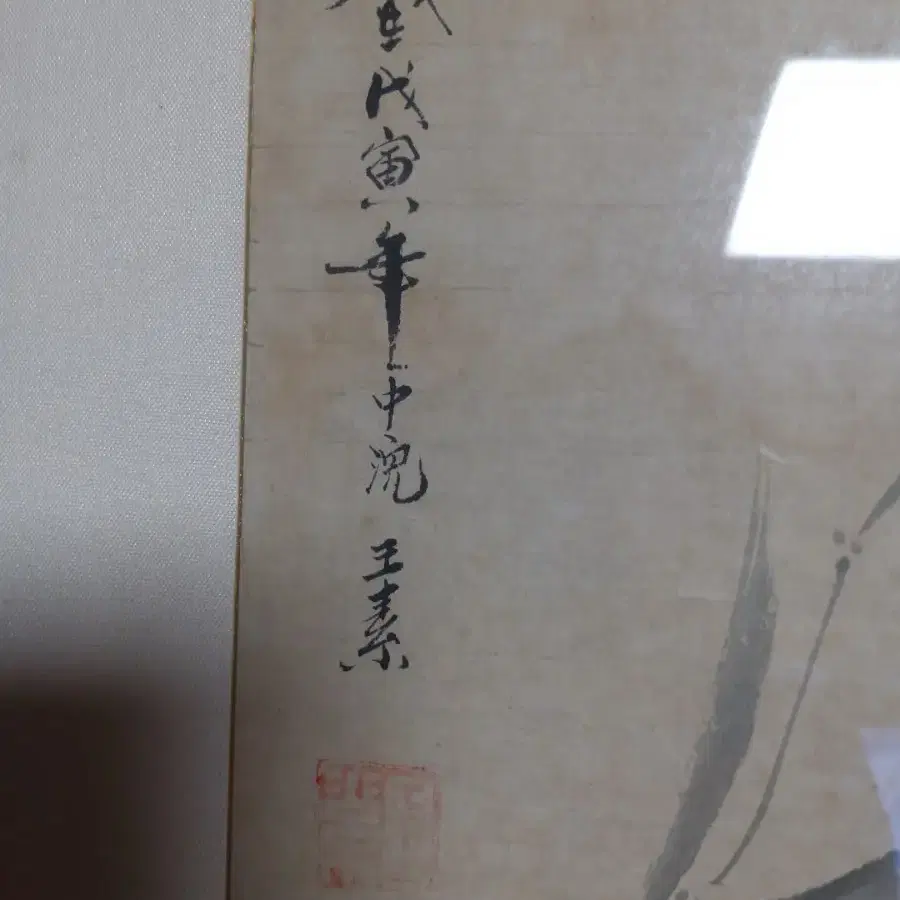 戊寅年中浣 王素